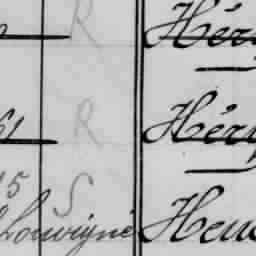 R Hér
61 R Héry
15 S
Louvigné Hen